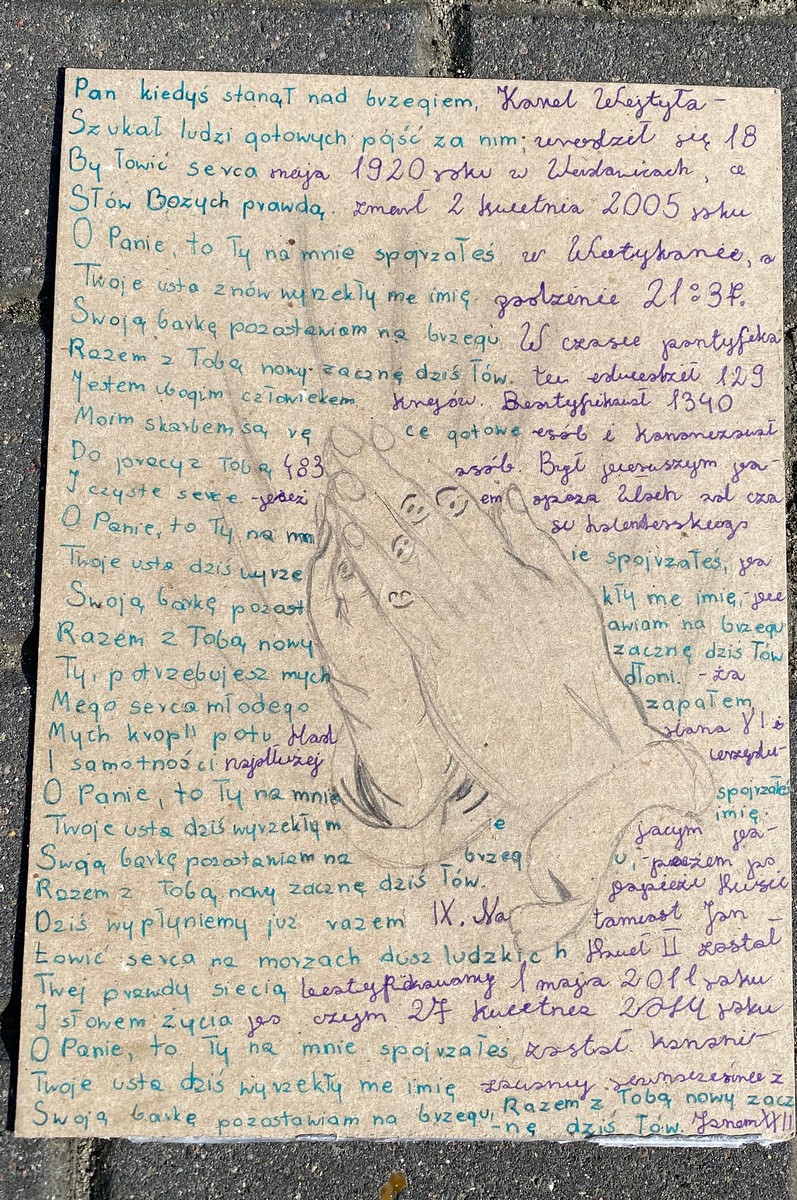 Pan kiedyś stanął nad brzegiem, Karol Wojtyła -
Szukał ludzi gotowych pójść za nim; urodził się 18
By łowić serca maja 1920 roku w Wadowicach, a
Słów Bożych prawdą. zmarł 2 kwietnia 2005 roku
O Panie, to Ty na mnie spojrzałeś w Watykanie, o
Twoje usta znów wyrzekły me imię. godzinie 21:37.
Swoją barkę pozostawiam na brzegu W czasie pontyfika
Razem z Tobą nowy zacznę dziś łów. tu odwiedził 129
Jestem ubogim człowiekem krajów. Beatyfikował 1340
Moim skarbem są rę ce gotowe osób i kanonizował
Do pracy z Tobą 483 osób. Był pierwszym pa-
I czyste serce -pież em spoza Włoch od cza
O Panie, to Ty na mn su
Twoje usta dziś wyrze ie spojrzałeś, pa
Swoją barkę pozost kły me imię,
Razem z Tobą nowy awiam na brzegu
Ty, potrzebujesz mych zacznę dziś łów
Mego serca młodego dłoni. -ża
Mych kropli potu zapałem
I samotności najdłużej VI i
O Panie, to Ty na mnie urzędu-
Twoje usta dziś wyrzekły m e spojrzałeś
Swą barkę pozostawiam na brzeg imię.
Razem z Tobą nowy zacznę dziś łów. u, jącym pa-
Dziś wypłyniemy już razem IX. Na papieżu Piusie
Łowić serca na morzach dusz ludzkich tomiast Jan
Twej prawdy siecią Paweł II został
I słowem życia beatyfikowany 1 maja 2011 roku
O Panie, to Ty na mnie spojrzałeś po czym 27 kwietnia 2014 roku
Twoje usta dziś wyrzekły me imię został kanoni-
Swoją barkę pozostawiam na brzegu, zowany równocześnie z
Razem z Tobą nowy zacz
-nę dziś łów. Janem XXIII